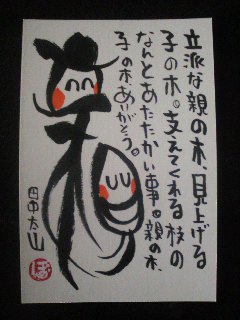 立派な親の木、見上げる
子の木。支えてくれる枝の
なんとあたたかい事。親の木
子の木ありがとう。
田中太山